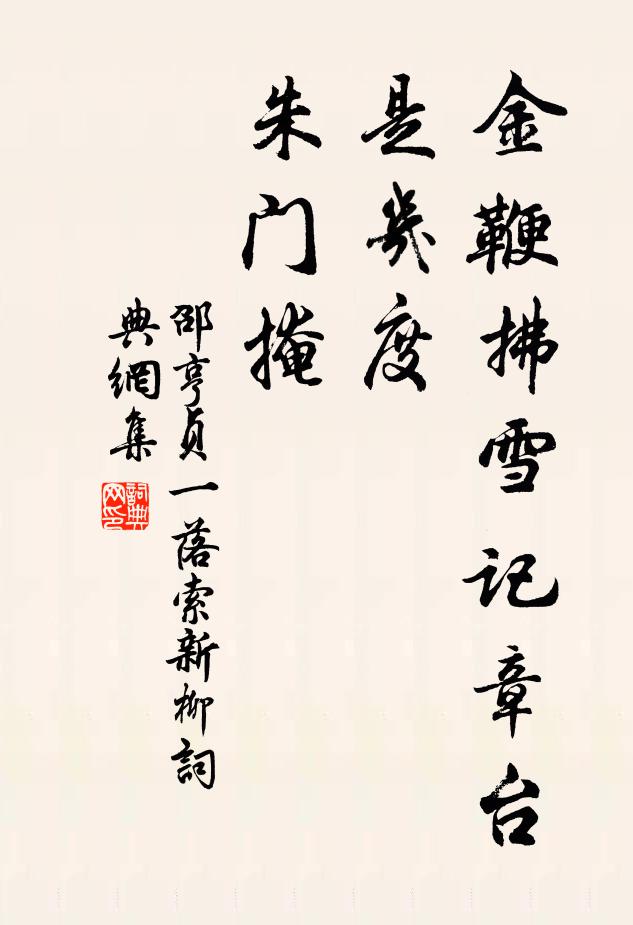 金鞭拂雪记章台
是几度
朱门掩
邵亨贞一落索新柳詞
典網集
詞典网印